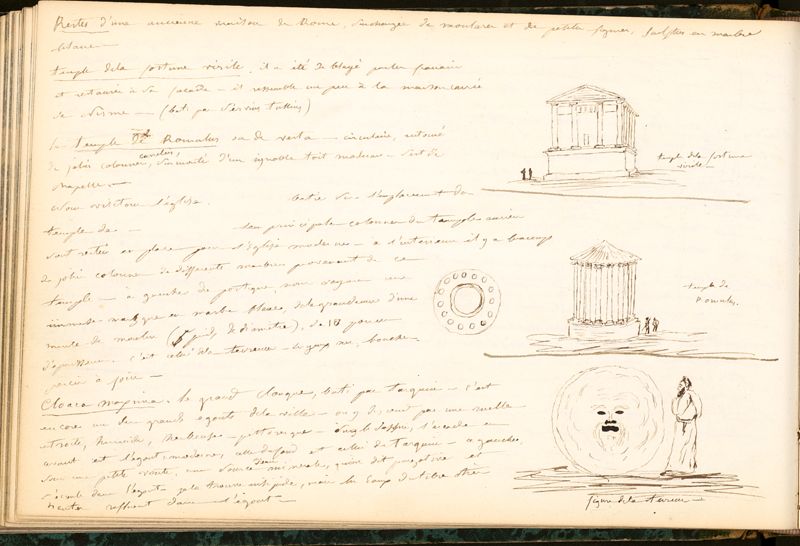 Restes d'une ancienne maison de Rome, surchargée de moulures et de petites figures, sculptées en marbre
blanc —
temple de la fortune virile. il a été déblayé par les français
et restauré à sa façade — il ressemble un peu à la maison carrée
de Nismes — (bati par Servius Tullius)
le temple de Romulus ou de vesta — circulaire, entouré
de jolies colonnes cannelées, d'un ignoble toit moderne — sert de
chapelle —
nous visitons l'église. batie sur l'emplacement du
temple de — les principales colonnes du temple ancien
sont restées en place pour l'église moderne — à l'intérieur il y a beaucoup
de jolies colonnes de différents marbres provenant de ce
temple — à gauche du portique, nous voyons une
immense masque en marbre blanc, de la grandeur d'une
meule de moulin (5 pieds de diamètre), de 18 pouces
d'épaisseur. c'est celui de la terreur — les yeux, nez, bouche
percés à jour —
Cloaca maxima. le grand cloaque, bati par tarquin — c'est
encore un des grands égouts de la ville — on y descend par une ruelle
étroite, humide, pittoresque —
avant est l'égout moderne, celui du fond est celui de tarquin — à gauche,
sous une petite voute, une source d'eau minérale, qui
s'écoule dans l'égout mais les eaux du tibre
refluent dans l'égout —
temple de la fortune
virile —
temple de
Romulus.
figure de la terreur —